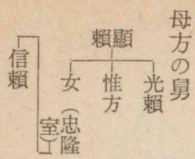 母方の舅
顯賴
光賴
惟方
女（忠隆室）
信賴